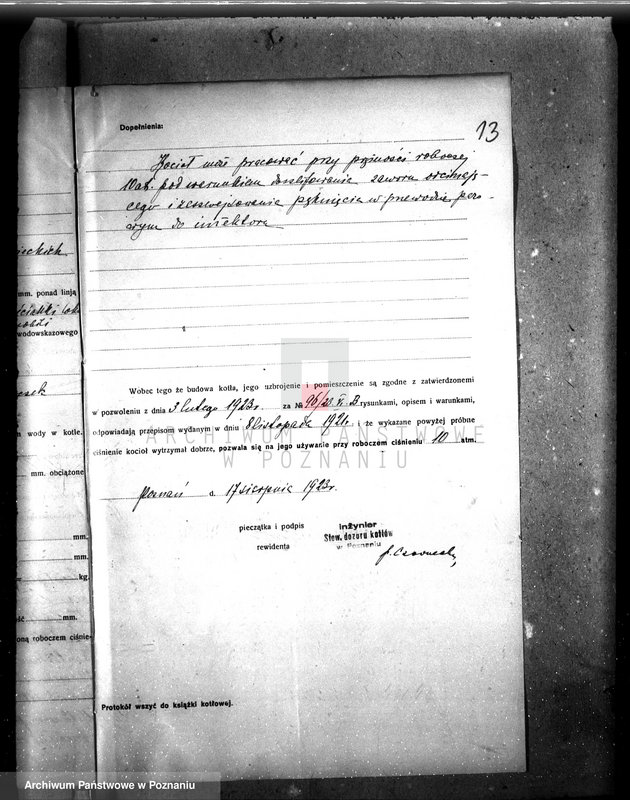 13
Dopełnienia:
Kocioł może pracować przy prężności roboczej
10 at. pod warunkiem doszlifowania zaworu odcinają-
cego i zeszwejsowania pęknięcia w przewodzie paro-
wym do inżektora
ieckich
mm. ponad linją
wodowskazowego
wody w kotle.
mm. obciążone
mm.
mm.
kg.
mm.
oną roboczem ciśnie-
Wobec tego że budowa kotła, jego uzbrojenie i pomieszczenie są zgodne z zatwierdzonemi
w pozwoleniu z dnia 3 lutego 1923 r. za № 96/23 VI. B rysunkami, opisem i warunkami,
odpowiadają przepisom wydanym w dniu 8 listopada 1921 r. i że wykazane powyżej próbne
ciśnienie kocioł wytrzymał dobrze, pozwala się na jego używanie przy roboczem ciśnieniu 10 atm.
ARCHIWUM PAŃSTWOWE
W POZNANIU
Poznań d. 17 sierpnia 1923 r.
pieczątka i podpis
rewidenta
Inżynier
Stow. dozoru kotłów
w Poznaniu
Protokół wszyć do książki kotłowej.
Archiwum Państwowe w Poznaniu